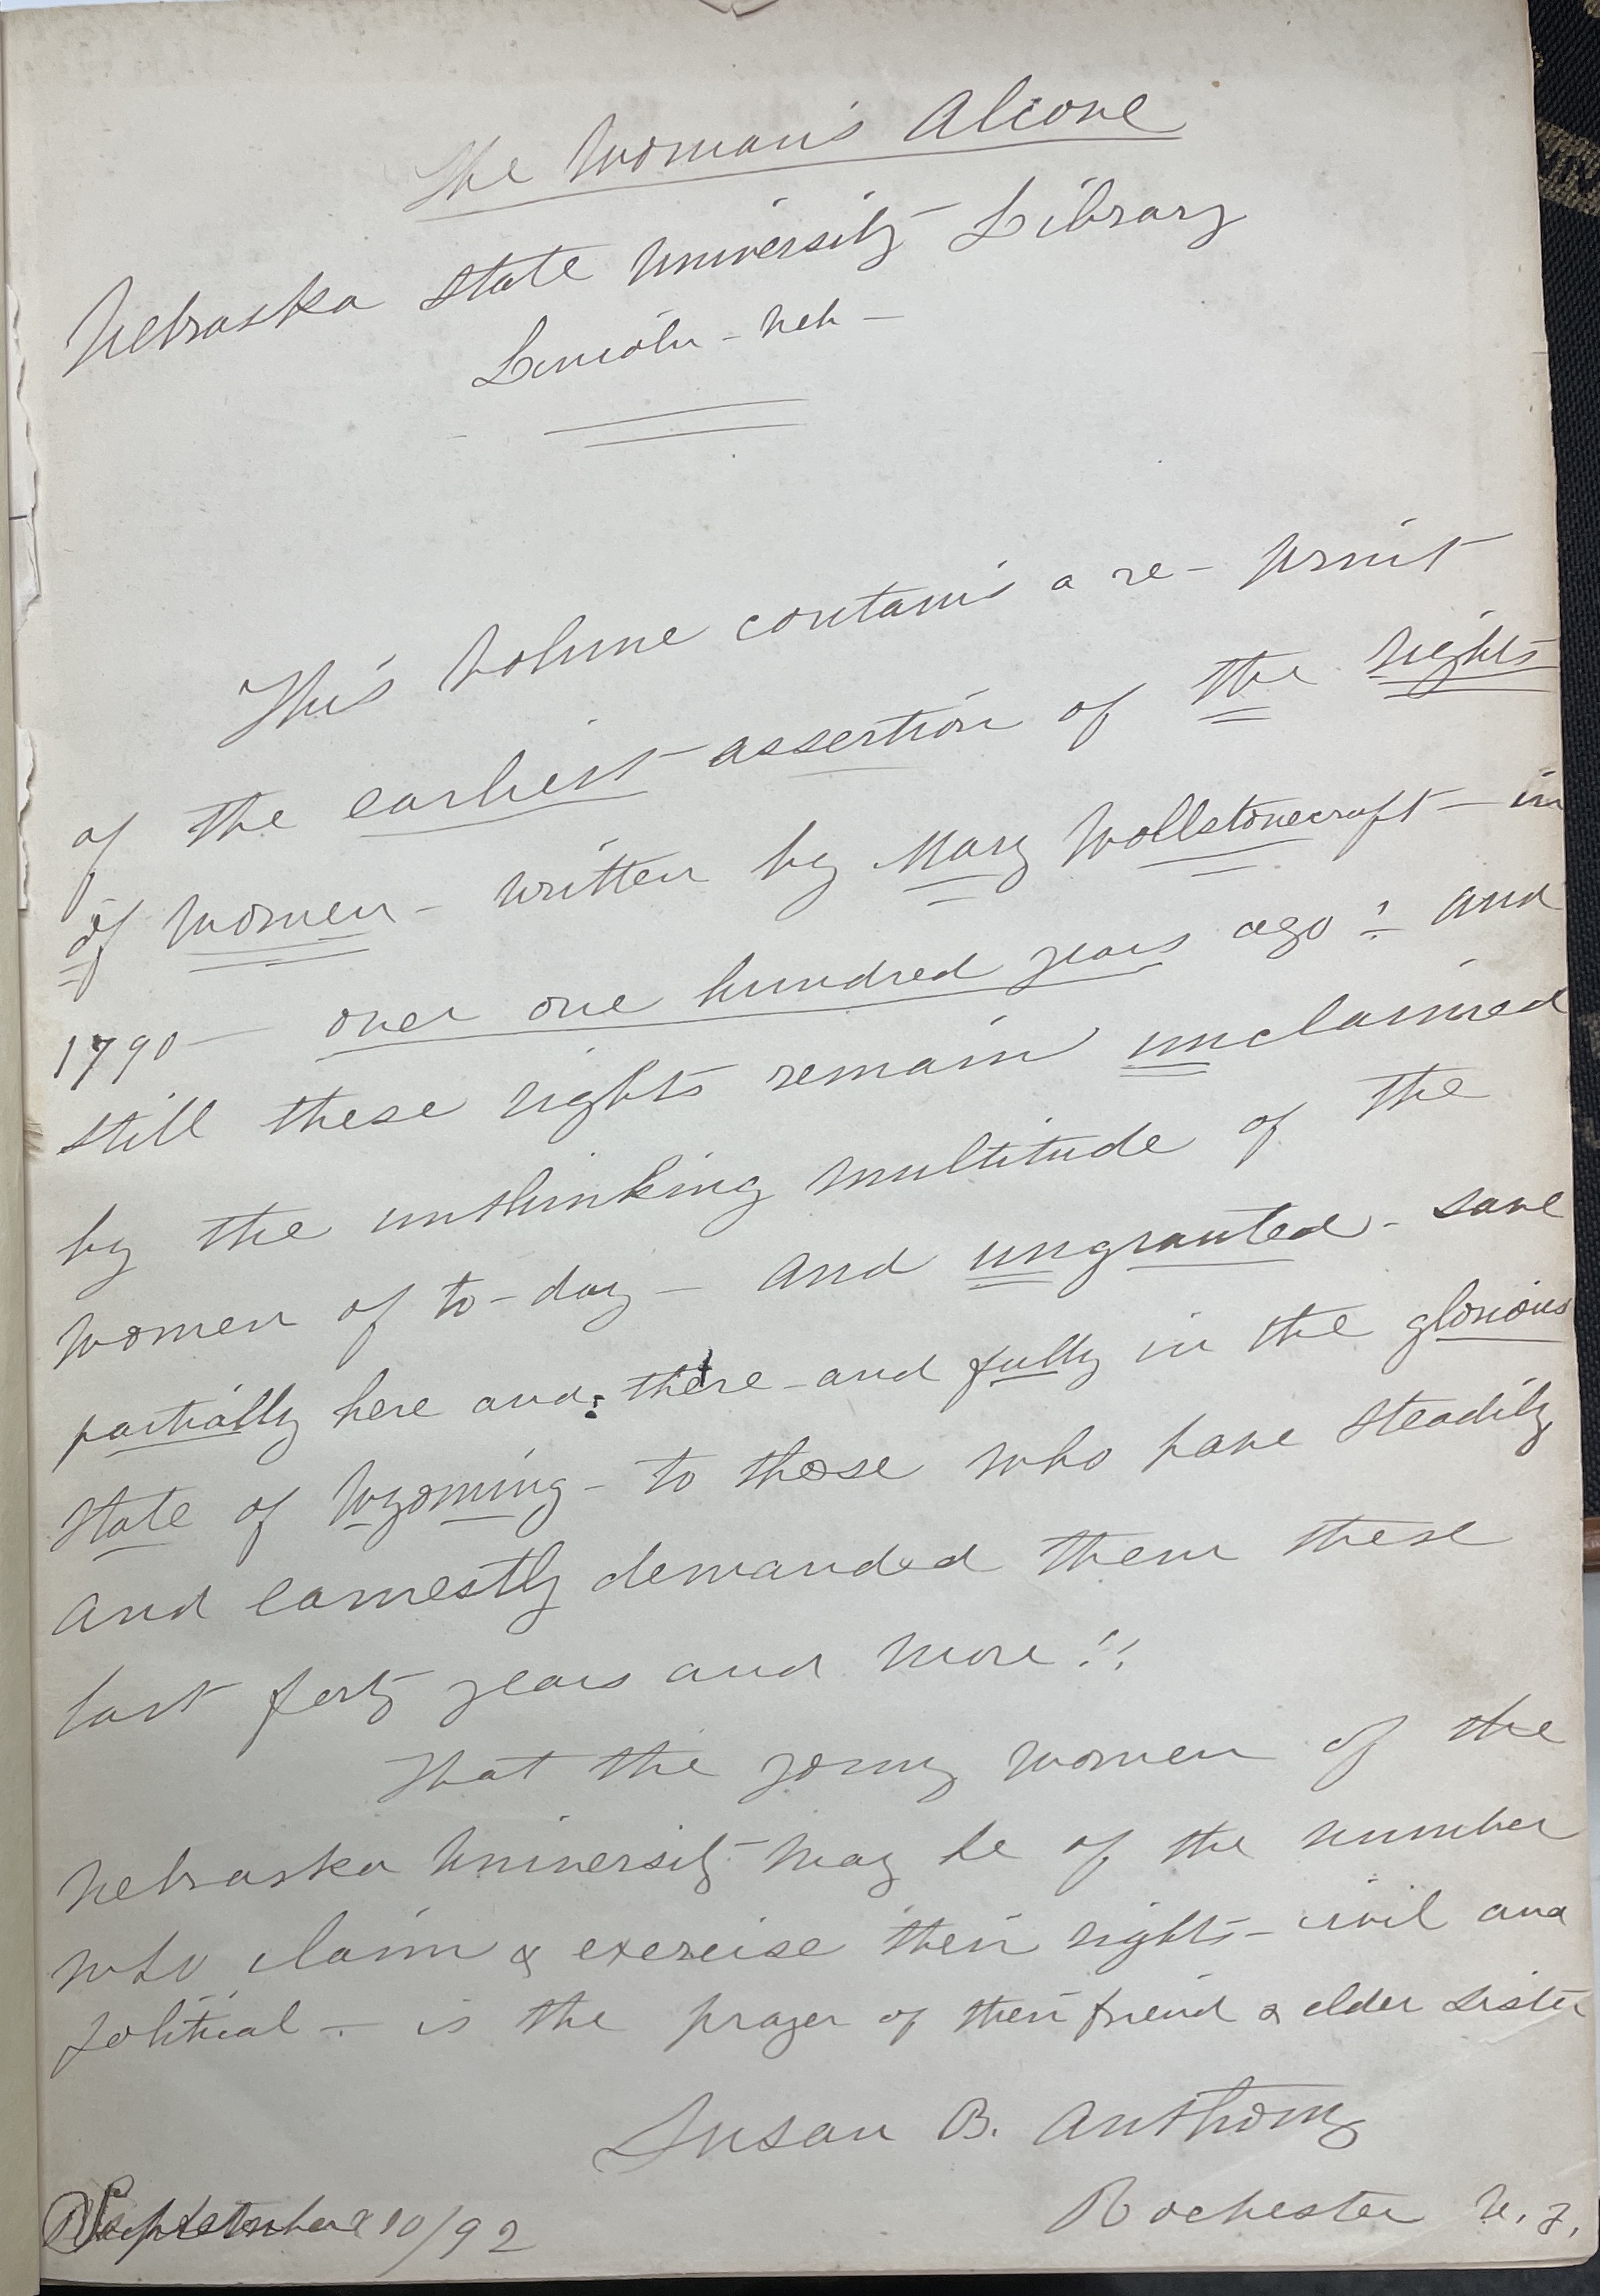 The Woman's Alcove
Nebraska State University Library
Lincoln - Neb -
This volume contains a re- print
of the earliest assertion of the rights
of women - written by Mary Wollstonecraft - in
1790 - over one hundred years ago! - and
still these rights remain unclaimed
by the unthinking multitude of the
women of to-day - and ungranted - save
partially here and there - and fully in the glorious
State of Wyoming - to those who have steadily
and earnestly demanded them these
last forty years and more!!
That the young women of the
Nebraska University may be of the number
who claim & exercise their rights - civil and
political - is the prayer of their friend & elder sister
Susan B. Anthony
Rochester N.Y.
September 10/92